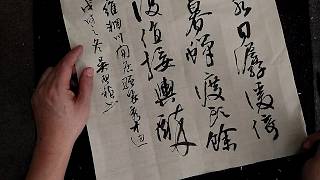 水日潺湲倚
暮蟬渡頭餘
復值接輿醉
維輞川閒居贈裴秀才迪
之冬